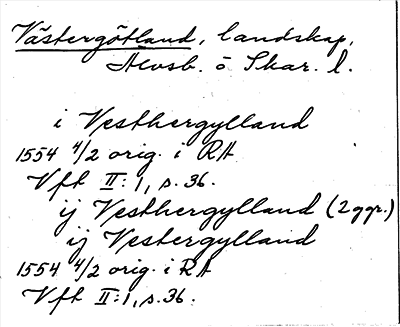 Västergötland, landskap,
Älvsb. o Skar. l.
i Vesthergylland
1554 4/2 orig. i RA
Vft II:1, s. 36.
ij Vesthergylland (2 ggr.)
ij Vestergylland
1554 4/2 orig. i RA
Vft II:1, s. 36.